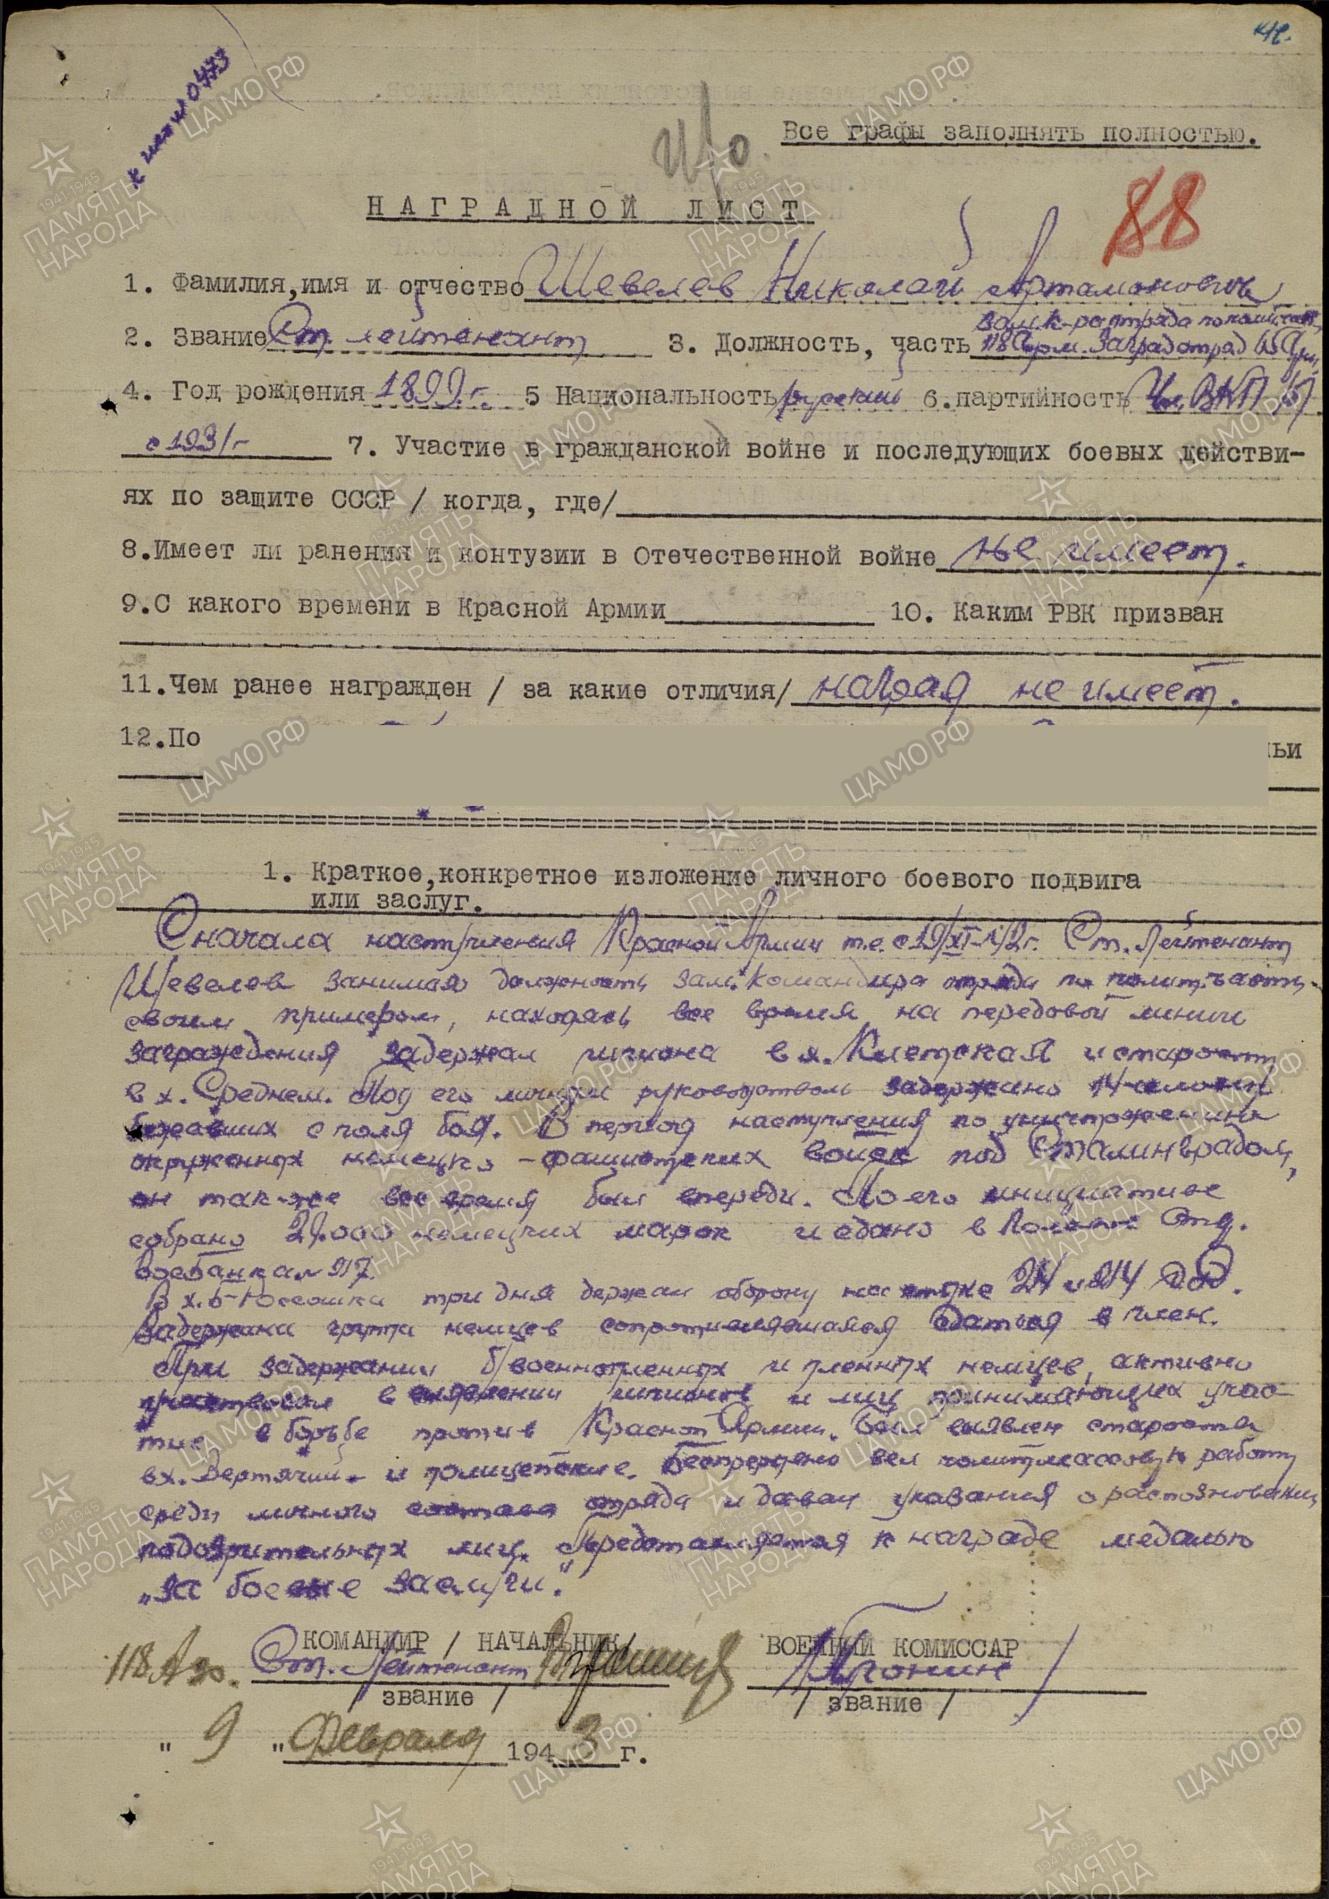 к исх № 0473
Все графы заполнять полностью.
88
НАГРАДНОЙ ЛИСТ
1. Фамилия,имя и отчество Шевелев Николай Артамонович
2. Звание Ст. лейтенант 3. Должность, часть зам. к-ра отряда по полит. части
118 Арм. Заградотряд 65 Арм.
4. Год рождения 1899 г. 5 Национальность русский 6.партийность Чл. ВКП(б)
с 1931 г 7. Участие в гражданской войне и последующих боевых действи-
ях по защите СССР / когда, где/
8.Имеет ли ранения и контузии в Отечественной войне не имеет.
9.С какого времени в Красной Армии 10. Каким РВК призван
11.Чем ранее награжден / за какие отличия/ наград не имеет.
12.По ьи
1. Краткое,конкретное изложение личного боевого подвига
или заслуг.
Сначала наступления Красной Армии т.е. с 19/XI-42г. Ст. Лейтенант
Шевелев занимая должность зам. Командира отряда по полит. части
своим примером, находясь все время на передовой линии
заграждения задержал шпиона в х. Клетская и старосту
в х. Среднем. Под его личным руководством задержано 14 человек
бежавших с поля боя. В период наступления по уничтожению
окруженных немецко-фашистских войск под Сталинградом,
он так-же все время был впереди. По его инициативе
собрано 29.000 немецких марок и сдано в Полевое Отд.
Госбанка № 917.
В х. Б-Россошка три дня держал оборону на стыке 24 и 214 СД.
Задержана группа немцев сопротивлявшаяся сдаться в плен.
При задержании б/военнопленных и пленных немцев, активно
участвовал в выявлении шпионов и лиц принимающих учас-
тие в борьбе против Красной Армии. Был выявлен староста
в х. Вертячий и полицейские. Беспрерывно вел политмассовую работу
среди личного состава отряда и давал указания о распозновании
подозрительных лиц. Представляется к награде медалью
„За боевые заслуги."
КОМАНДИР / НАЧАЛЬНИК/ ВОЕННЫЙ КОМИССАР
118 Азо. Ст. Лейтенант
/ звание / / звание /
" 9 " Февраля 1943 г.
ПАМЯТЬ НАРОДА
1941-1945
ЦАМО РФ